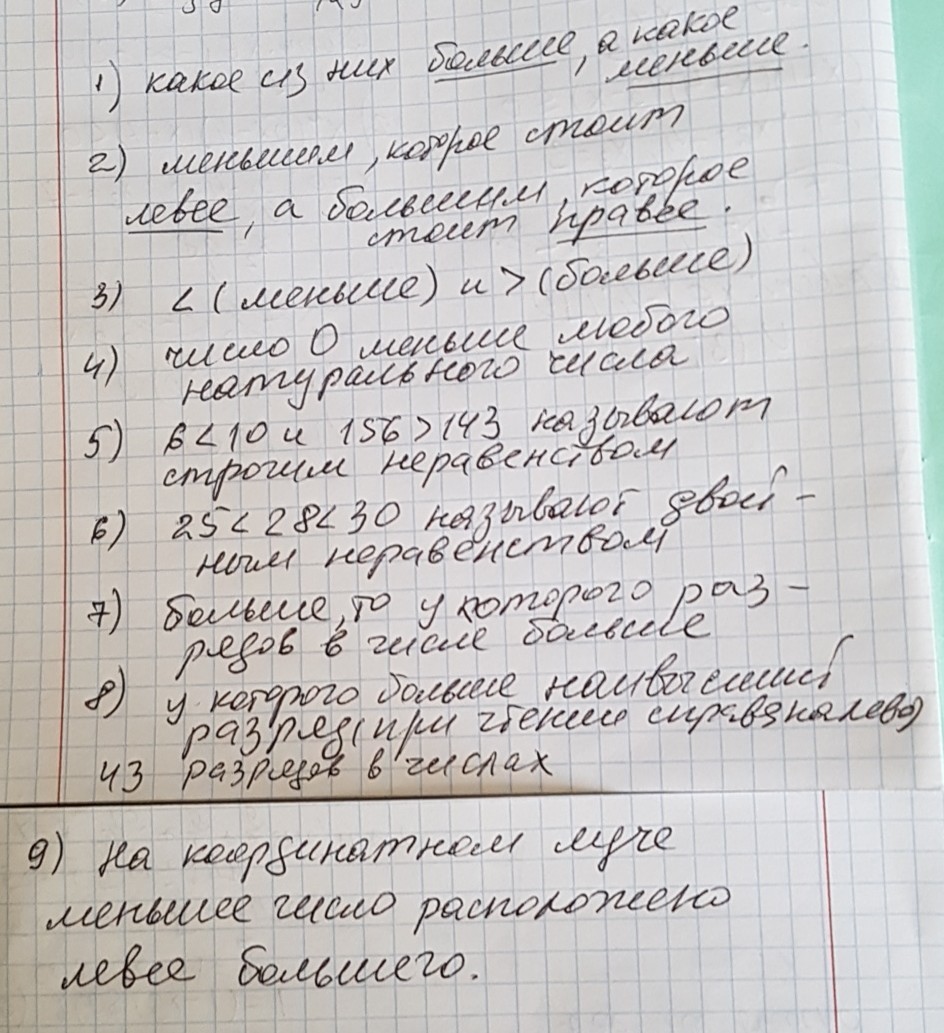 1) какое из них больше, а какое
меньше.
2) меньшим, которое стоит
левее, а большим, которое
стоит правее.
3) < (меньше) и > (больше)
4) число 0 меньше любого
натурального числа
5) 6 < 10 и 156 > 143 называют
строгим неравенством
6) 25 < 28 < 30 называют двой-
ным неравенством
7) больше, то у которого раз-
рядов в числе больше
8) у которого больше наивысший
разряд (при чтении справа налево)
из разрядов в числах
9) На координатном луче
меньшее число расположено
левее большего.